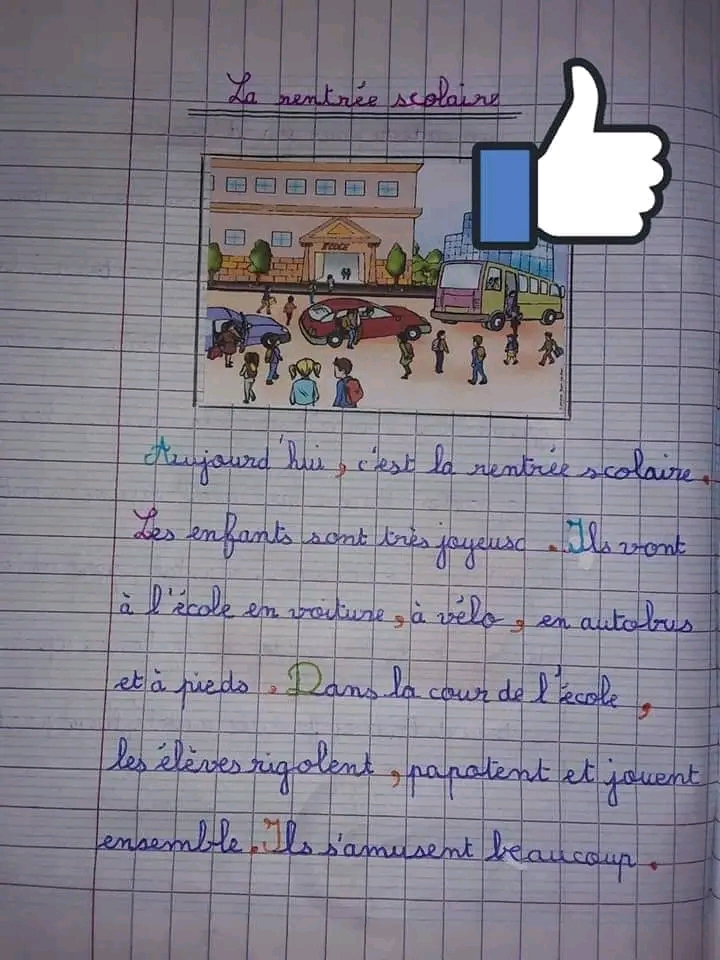 La rentrée scolaire
ECOLE
Aujourd'hui, c'est la rentrée scolaire.
Les enfants sont très joyeux. Ils vont
à l'école en voiture, à vélo, en autobus
et à pieds. Dans la cour de l'école,
les élèves rigolent, papotent et jouent
ensemble. Ils s'amusent beaucoup.